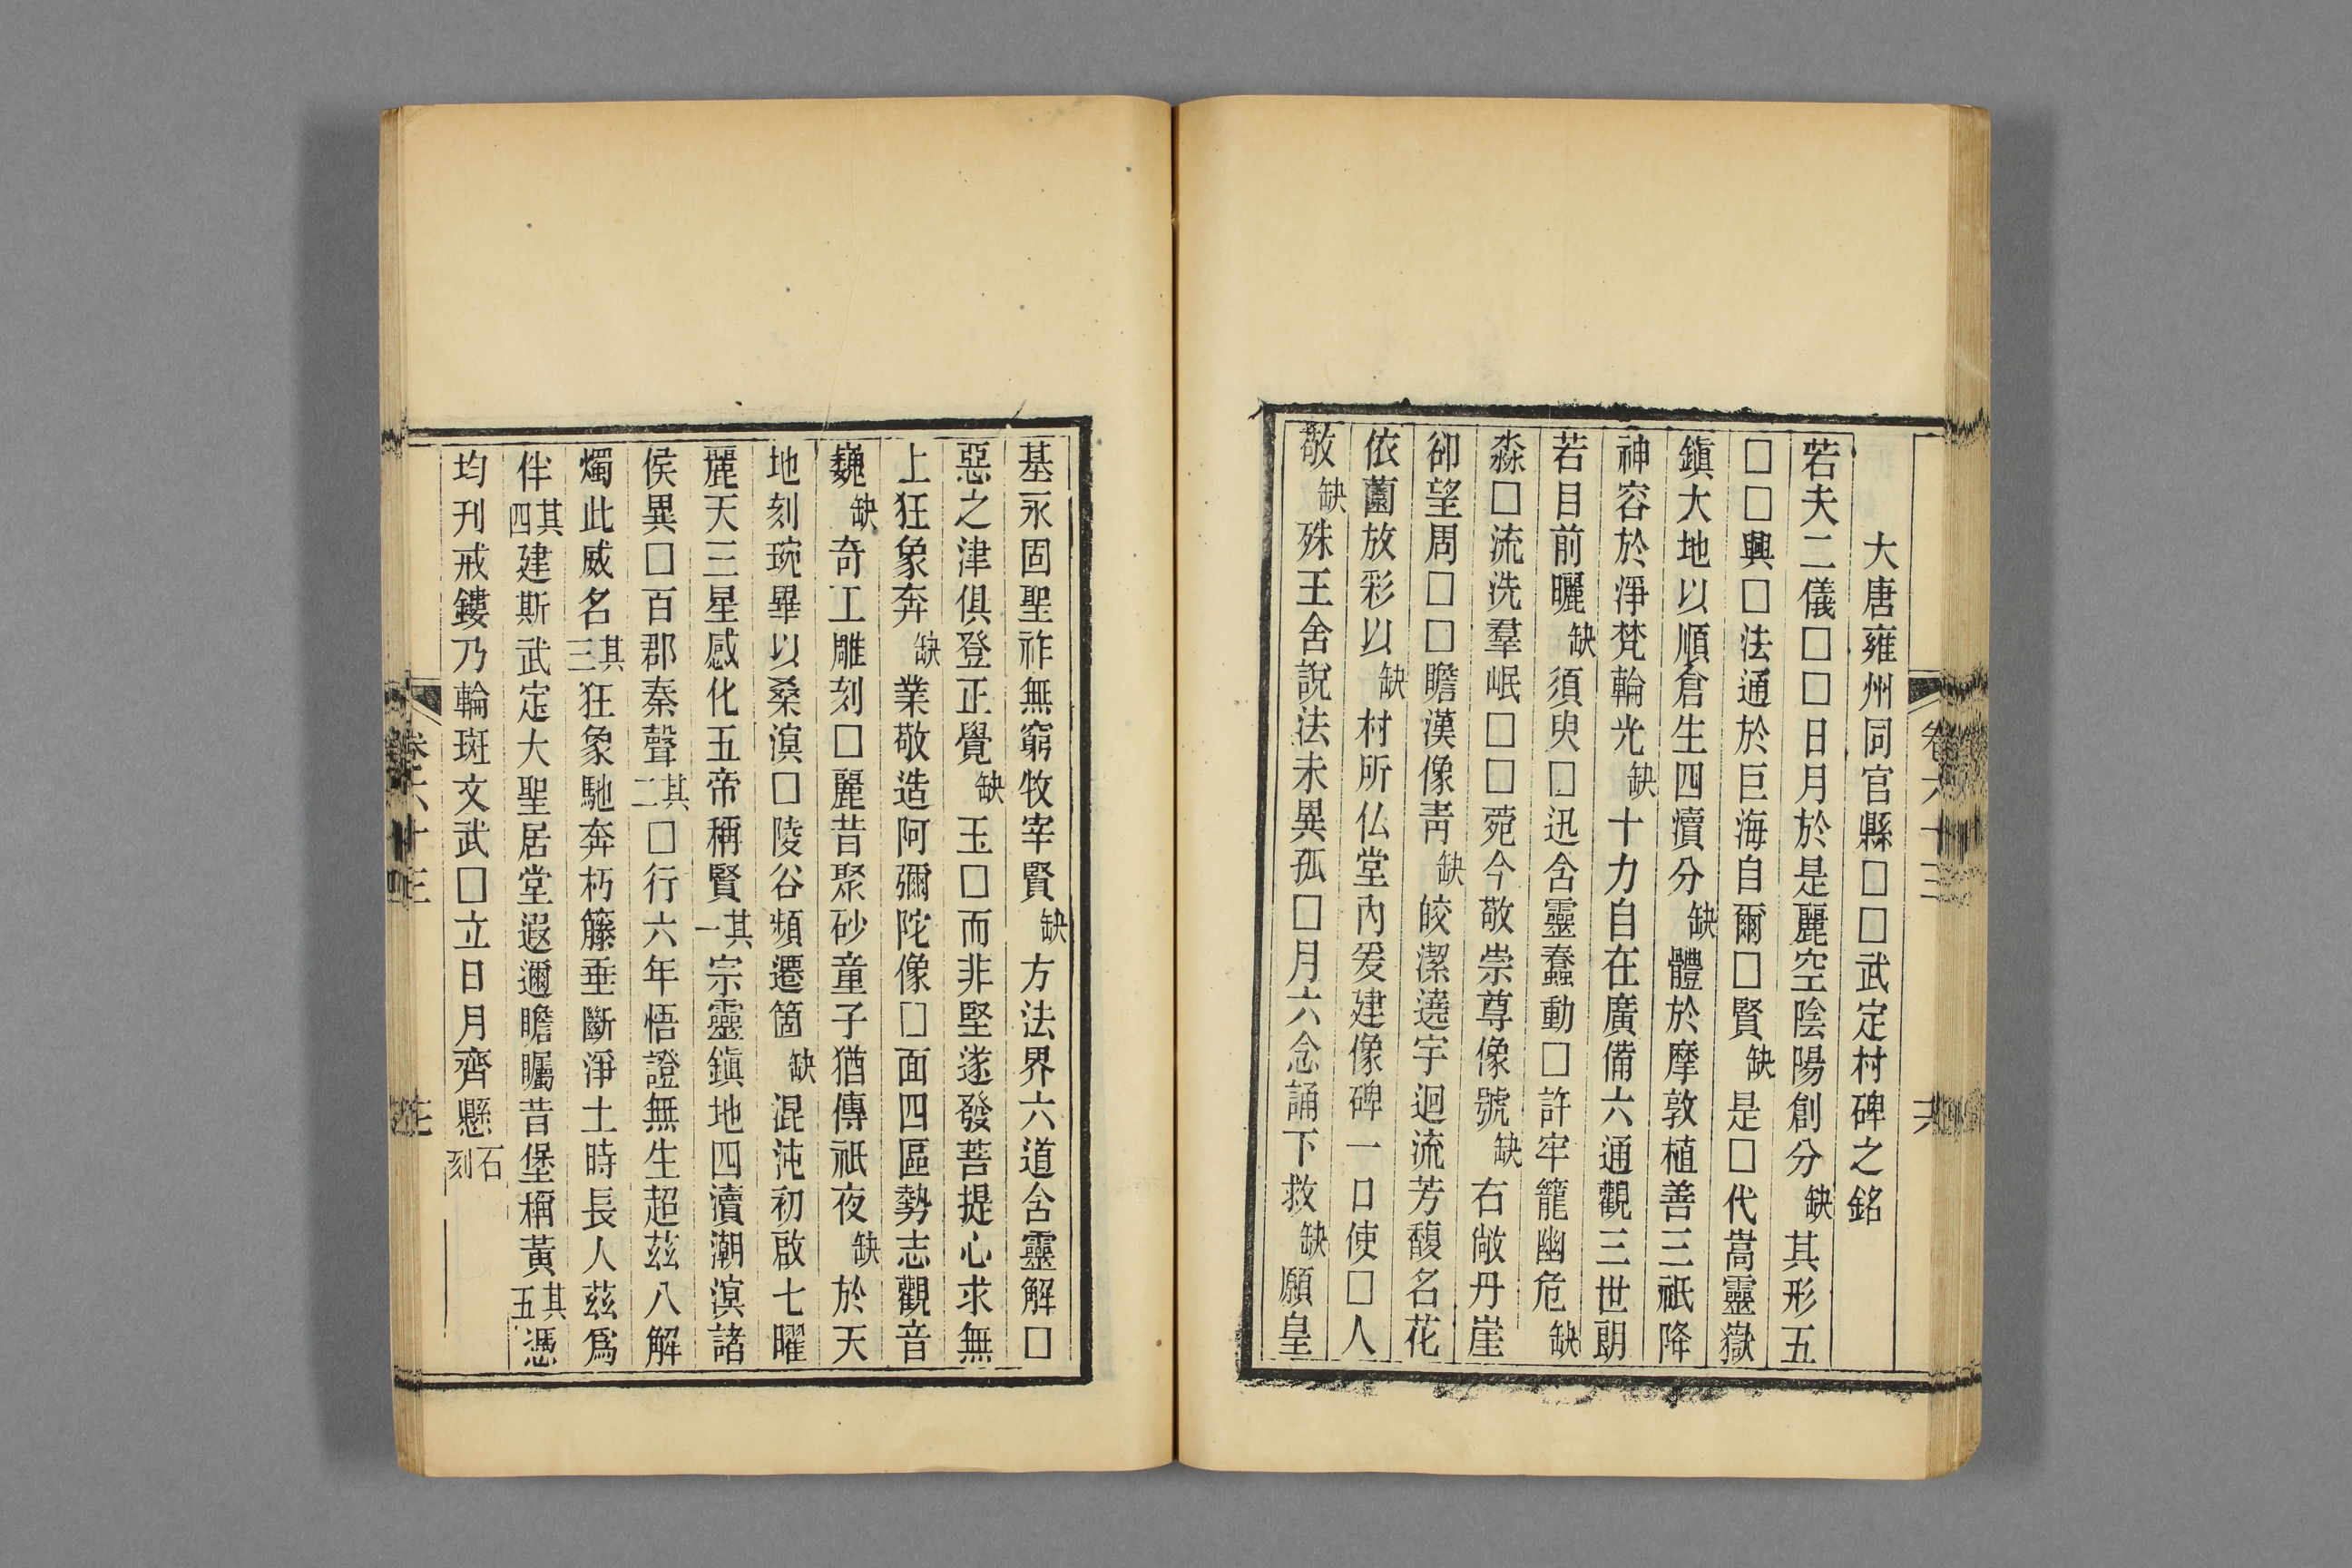 卷六十三
大唐雍州同官縣□□武定村碑之銘
若夫二儀□□日月於是麗空陰陽創分缺其形五
□□興□法通於巨海自爾□賢缺是□代嵩靈嶽
鎮大地以順倉生四瀆分缺體於摩敦植善三祇降
神容於淨梵輪光缺十力自在廣備六通觀三世朗
若目前曬缺須臾□迅含靈蠢動□許牢籠幽危缺
淼□流洗羣岷□□菀今敬崇尊像號缺右敞丹崖
卻望周□□瞻漢像靑缺皎潔遶宇迴流芳馥名花
依薗放彩以缺村所仏堂內爰建像碑一口使□人
敬缺殊王舍說法未異孤□月六念誦下救缺願皇
基永固聖祚無窮牧宰賢缺方法界六道含靈解□
惡之津俱登正覺缺玉□而非堅遂發菩提心求無
上狂象奔缺業敬造阿彌陀像□面四區勢志觀音
巍缺奇工雕刻□麗昔聚砂童子猶傳祇夜缺於天
地刻琬畢以桑溟□陵谷頻遷箇缺混沌初啟七曜
麗天三星感化五帝稱賢其一宗靈鎮地四瀆潮溟諸
侯異□百郡秦聲其二□行六年悟證無生超茲八解
燭此威名其三狂象馳奔朽籐垂斷淨土時長人茲爲
伴其四建斯武定大聖居堂遐邇瞻矚昔堡稱黃其五憑
均刊戒鏤乃輪斑文武□立日月齊懸石刻
卷六十三